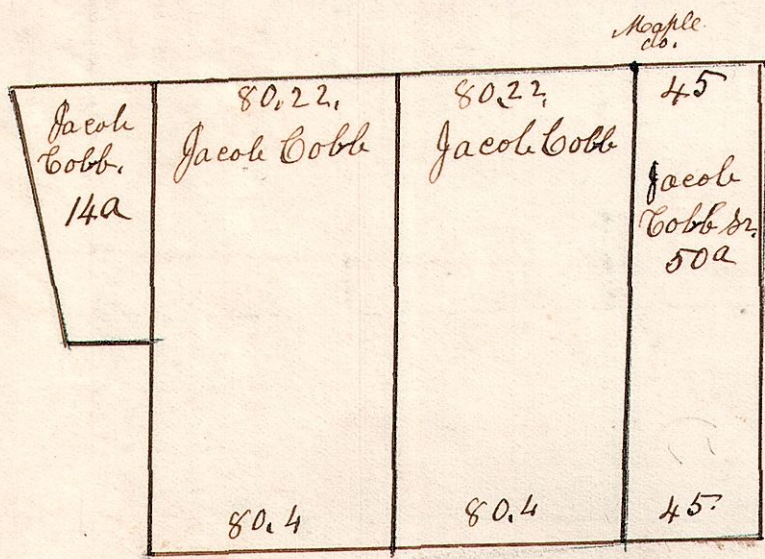 Maple
do.
Jacob
Cobb.
14a
80.22.
Jacob Cobb
80.22.
Jacob Cobb
45
Jacob
Cobb Sr.
50a
80.4
80.4
45.